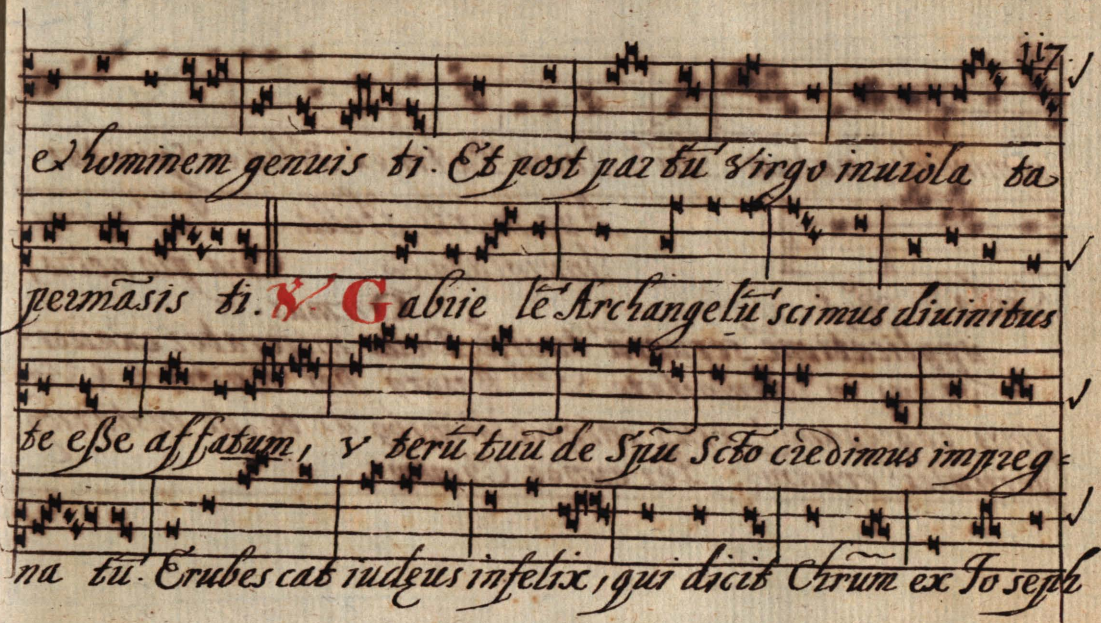 117.
et hominem genuis ti. Et post partũ Virgo inuiola ta
permãsis ti. ℣ Gabrie lẽ Archangelũ scimus diuinitus
te eße affatum, v terũ tuũ de Spũ Scto credimus impreg=
na tũ. Erubescat iudęus infelix, qui dicit Chrũm ex Jo seph